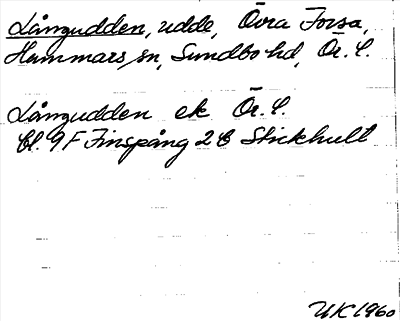 Långudden, udde, Övra Forsa,
Hammars sn, Sundbo hd, Ör. L.
Långudden ek Ör. L.
Bl. 9 F Finspång 2 C Stickhult
UK 1960